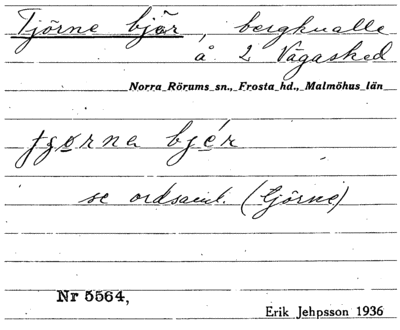 Tjörne bjär, bergknalle
å 2 Vägasked
Norra Rörums sn., Frosta hd., Malmöhus län
se ordsaml. (tjörne)
Nr 5564,
Erik Jehpsson 1936